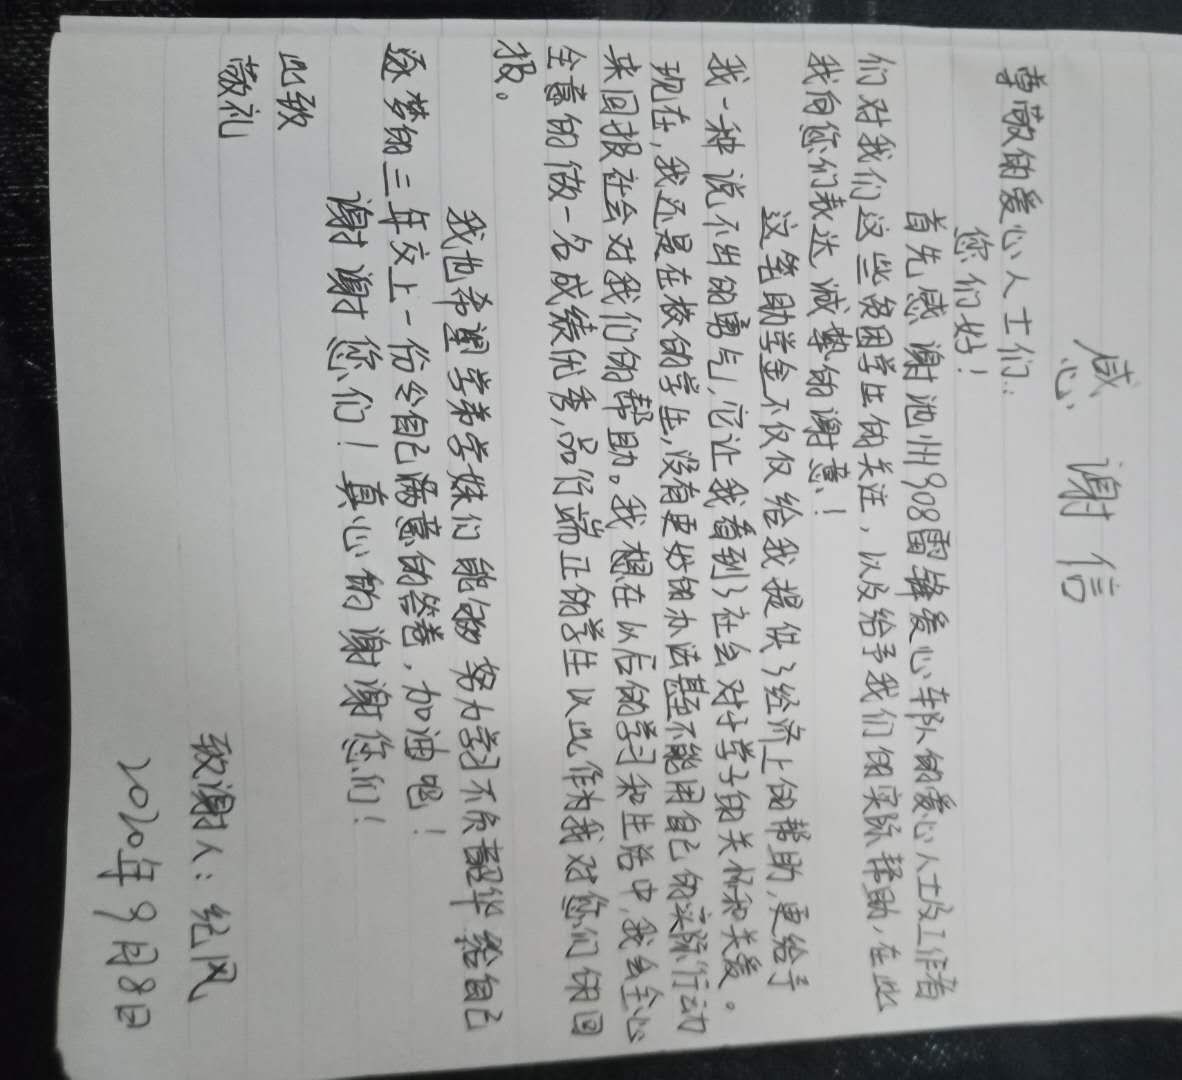 感谢信
尊敬的爱心人士们：
您们好！
首先感谢池州908雷锋爱心车队的爱心人士及工作者
们对我们这些贫困学生的关注，以及给予我们的实际帮助，在此
我向您们表达诚挚的谢意！
这笔助学金不仅仅给我提供了经济上的帮助，更给予
我一种说不出的勇气，它让我看到了社会对于学子的关怀和关爱。
现在，我还是在校的学生，没有更好的办法甚至不能用自己的实际行动
来回报社会对我们的帮助。我想在以后的学习和生活中，我会全心
全意的做一名成绩优秀，品行端正的学生以此作为我对您们的回
报。
我也希望学弟学妹们能够努力学习不负韶华给自己
逐梦的三年交上一份令自己满意的答卷，加油吧！
谢谢您们！真心的谢谢您们！
此致
敬礼
致谢人：纪风
2020年9月8日